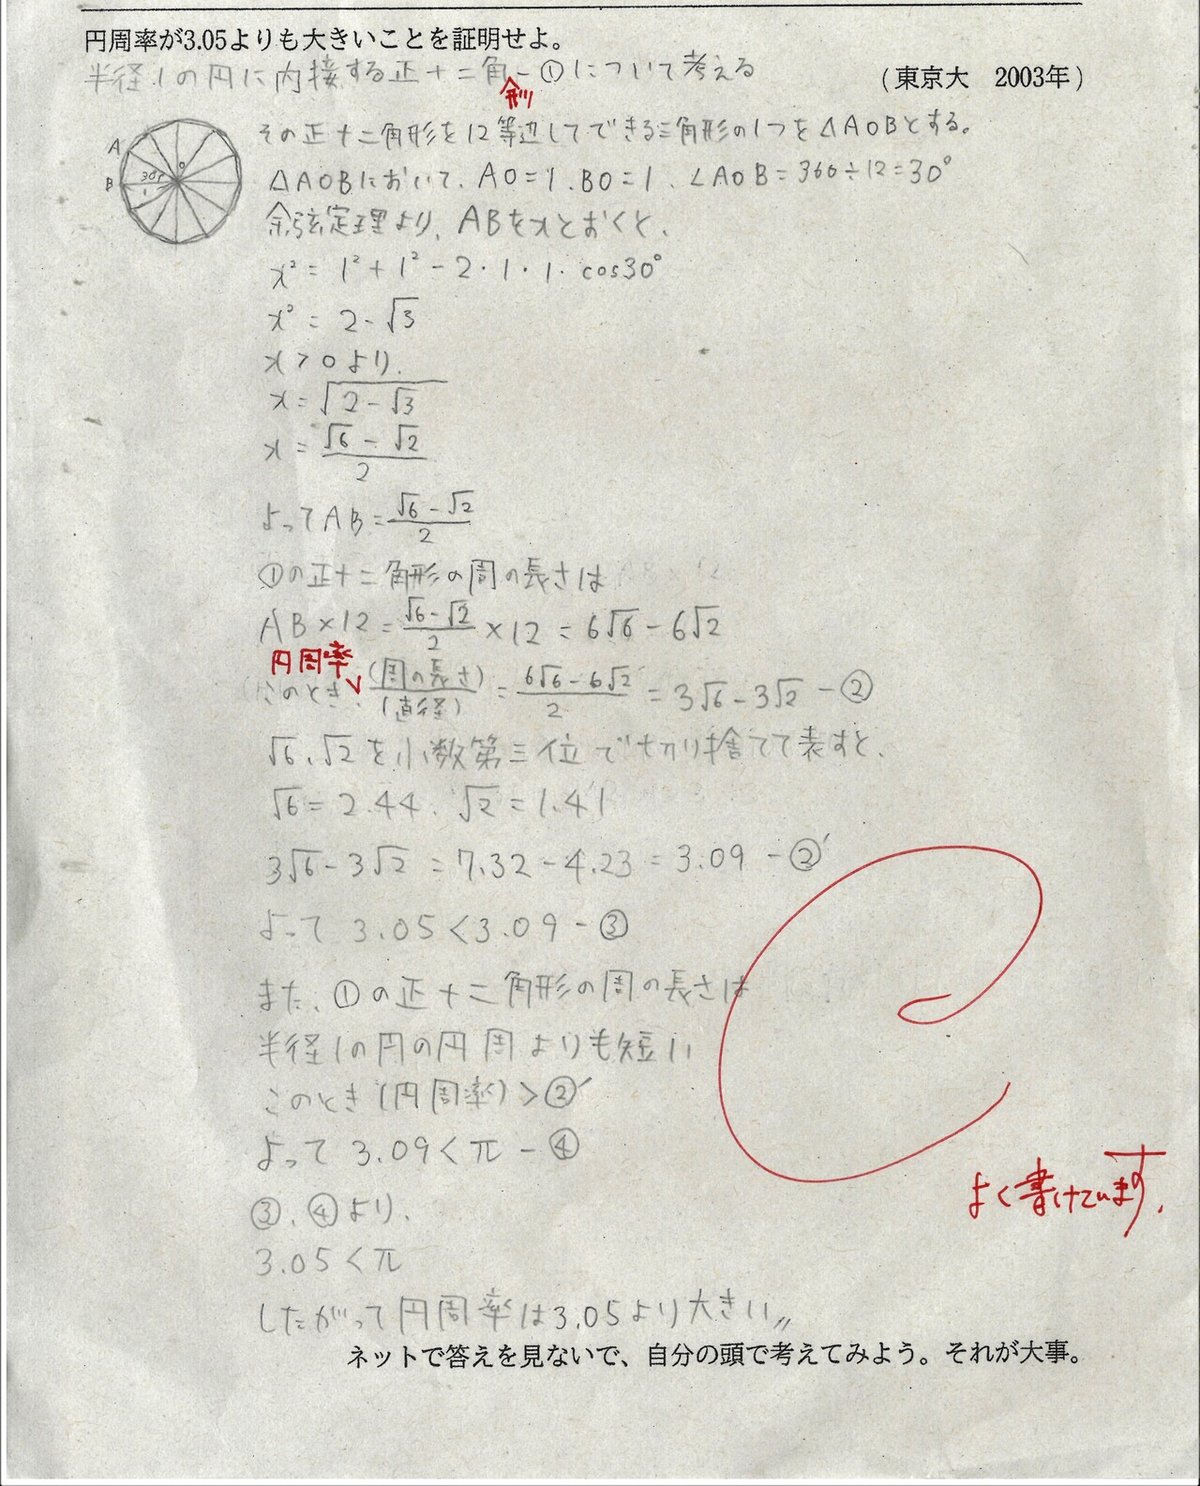 円周率が3.05よりも大きいことを証明せよ。
半径1の円に内接する正十二角-①について考える
形
(東京大 2003年)
その正十二角形を12等辺してできる三角形の1つを△AOBとする。
A
B
O
30°
1
△AOBにおいて、AO=1、BO=1、∠AOB=360÷12=30°
余弦定理より、ABをxとおくと、
x²=1²+1²-2・1・1・cos30°
x²=2-√3
x>0より、
x=√(2-√3)
x=(√6-√2)/2
よってAB=(√6-√2)/2
①の正十二角形の周の長さは
AB×12=(√6-√2)/2×12=6√6-6√2
円周率
このとき、(周の長さ)/(直径)=(6√6-6√2)/2=3√6-3√2-②
√6、√2を小数第三位で切り捨てて表すと、
√6=2.44、√2=1.41
3√6-3√2=7.32-4.23=3.09-②′
よって3.05<3.09-③
また、①の正十二角形の周の長さは
半径1の円の円周よりも短い
このとき(円周率)>②′
よって3.09<π-④
③、④より、
3.05<π
したがって円周率は3.05より大きい〃
よく書けています。
ネットで答えを見ないで、自分の頭で考えてみよう。それが大事。